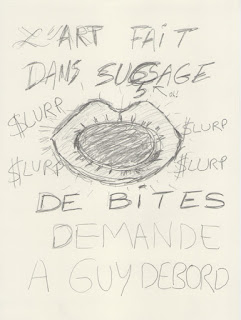 L'ART FAIT
DANS SUÇSAGE
5 ou
$LURP $LURP
$LURP $LURP
DE BITES
DEMANDE
A GUY DEBORD